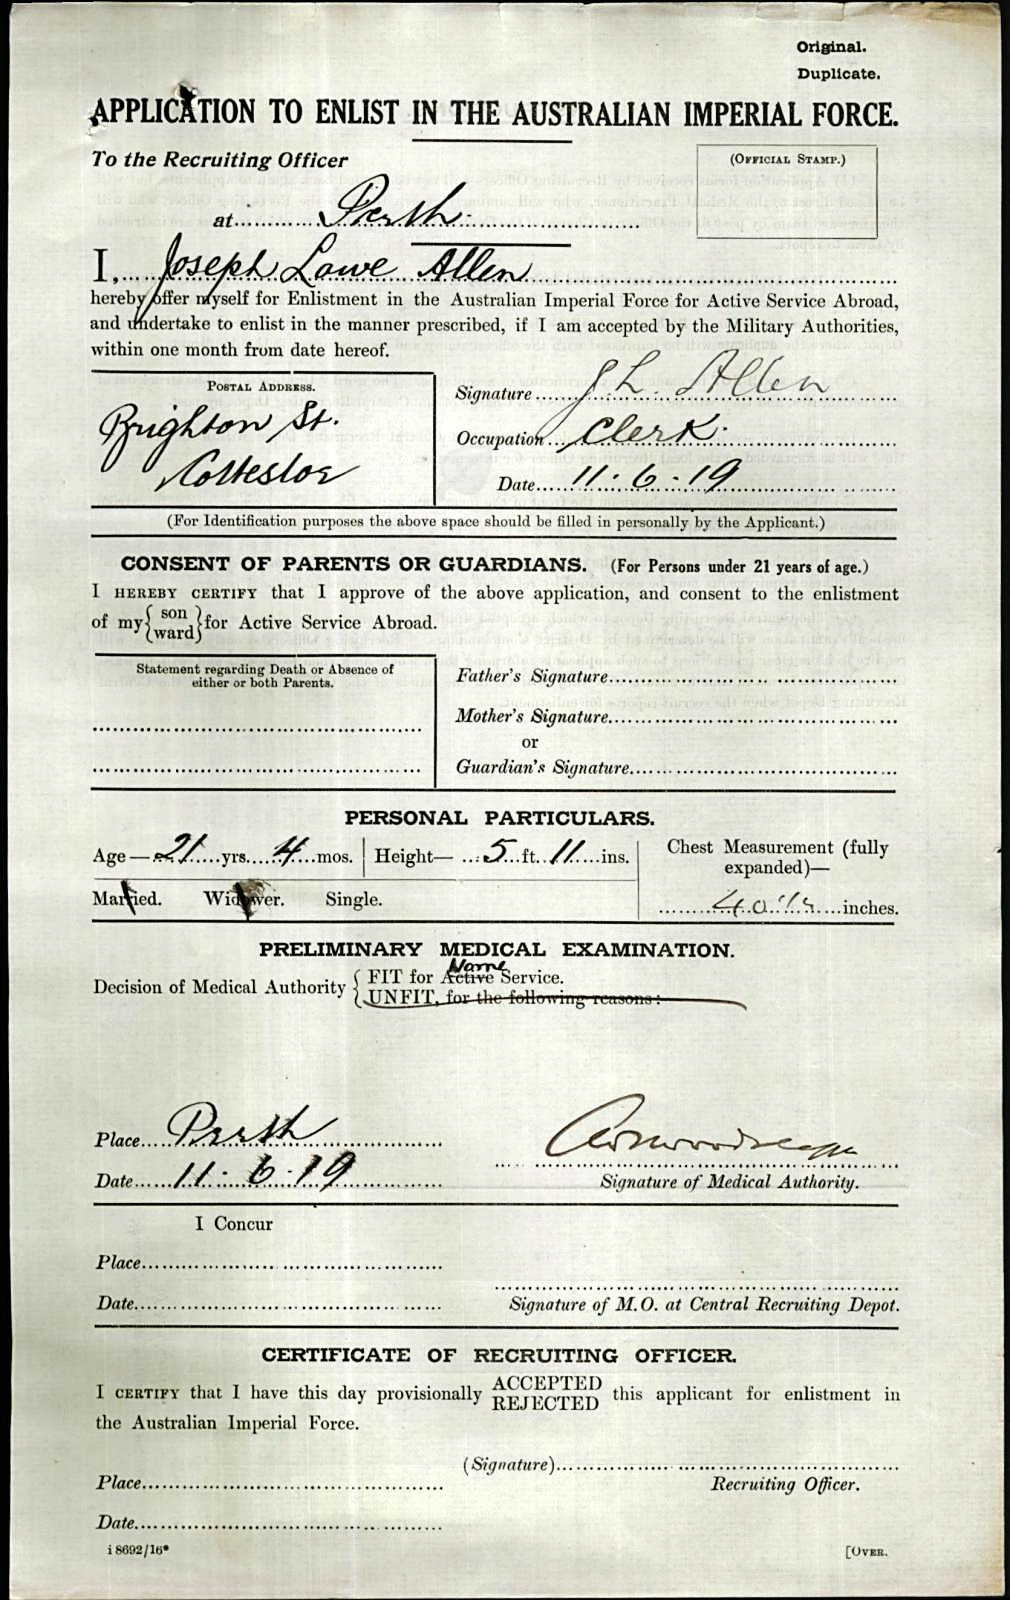 Original.
Duplicate.
APPLICATION TO ENLIST IN THE AUSTRALIAN IMPERIAL FORCE.
To the Recruiting Officer
(OFFICIAL STAMP.)
at Perth.
I, Joseph Lowe Allen
hereby offer myself for Enlistment in the Australian Imperial Force for Active Service Abroad,
and undertake to enlist in the manner prescribed, if I am accepted by the Military Authorities,
within one month from date hereof.
POSTAL ADDRESS.
Brighton St.
Cottesloe
Signature J. L. Allen
Occupation Clerk.
Date 11.6.19
(For Identification purposes the above space should be filled in personally by the Applicant.)
CONSENT OF PARENTS OR GUARDIANS. (For Persons under 21 years of age.)
I HEREBY CERTIFY that I approve of the above application, and consent to the enlistment
of my {son
ward} for Active Service Abroad.
Statement regarding Death or Absence of
either or both Parents.
Father's Signature
Mother's Signature
or
Guardian's Signature
PERSONAL PARTICULARS.
Age— 21 yrs. 4 mos. Height— 5 ft. 11 ins.
Chest Measurement (fully
expanded)—
40 1/2 inches.
Married. Widower. Single.
PRELIMINARY MEDICAL EXAMINATION.
Home
Decision of Medical Authority { FIT for Active Service.
UNFIT, for the following reasons:
Place Perth
Date 11.6.19
Signature of Medical Authority.
I Concur
Place
Date
Signature of M.O. at Central Recruiting Depot.
CERTIFICATE OF RECRUITING OFFICER.
I CERTIFY that I have this day provisionally ACCEPTED
REJECTED this applicant for enlistment in
the Australian Imperial Force.
(Signature)
Recruiting Officer.
Place
Date
i 8692/16*
[OVER.